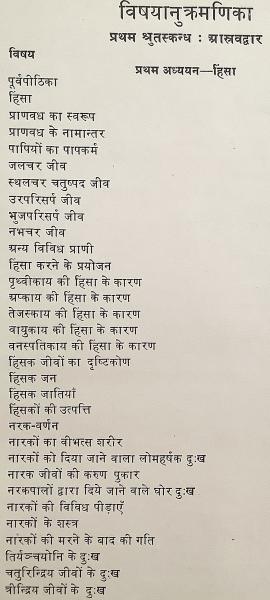 विषयानुक्रमणिका
प्रथम श्रुतस्कन्ध : आस्रवद्वार
विषय
प्रथम अध्ययन—हिंसा
पूर्वपीठिका
हिंसा
प्राणवध का स्वरूप
प्राणवध के नामान्तर
पापियों का पापकर्म
जलचर जीव
स्थलचर चतुष्पद जीव
उरपरिसर्प जीव
भुजपरिसर्प जीव
नभचर जीव
अन्य विविध प्राणी
हिंसा करने के प्रयोजन
पृथ्वीकाय की हिंसा के कारण
अप्काय की हिंसा के कारण
तेजस्काय की हिंसा के कारण
वायुकाय की हिंसा के कारण
वनस्पतिकाय की हिंसा के कारण
हिंसक जीवों का दृष्टिकोण
हिंसक जन
हिंसक जातियाँ
हिंसकों की उत्पत्ति
नरक-वर्णन
नारकों का वीभत्स शरीर
नारकों को दिया जाने वाला लोमहर्षक दुःख
नारक जीवों की करुण पुकार
नरकपालों द्वारा दिये जाने वाले घोर दुःख
नारकों की विविध पीड़ाएँ
नारकों के शस्त्र
नारकों की मरने के बाद की गति
तिर्यञ्चयोनि के दुःख
चतुरिन्द्रिय जीवों के दुःख
त्रीन्द्रिय जीवों के दुःख